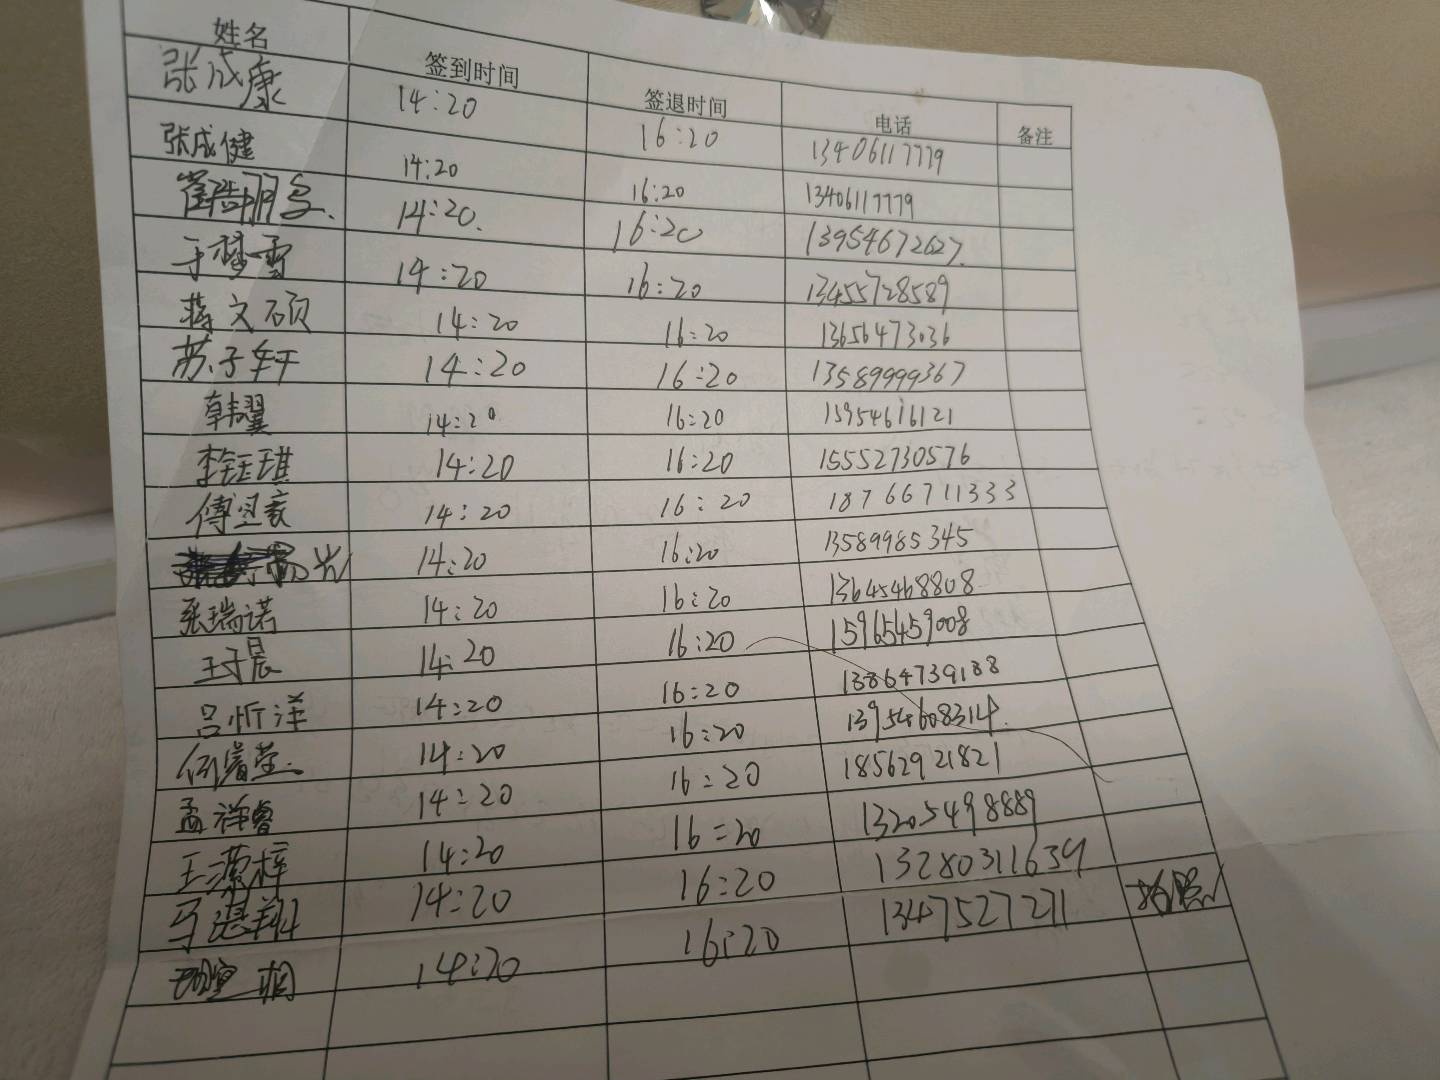 姓名 签到时间 签退时间 电话 备注
张成康 14:20 16:20 13406117779
张成健 14:20 16:20 13406117779
14:20. 16:20 13954672627.
于梦雪 14:20 16:20 13455728589
蒋文硕 14:20 16:20 13656473036
苏子轩 14:20 16:20 13589999367
韩翼 14:20 16:20 15954616121
李钰琪 14:20 16:20 15552730576
傅昱豪 14:20 16:20 18766711333
14:20 16:20 13589985345
张瑞诺 14:20 16:20 13645468808
晨 14:20 16:20 15965459008
吕忻洋 14:20 16:20 13864739188
何睿莹. 14:20 16:20 13954608314.
孟祥睿 14:20 16:20 18562921821
王潆梓 14:20 16:20 13205498889
14:20 16:20 13280311639
桐 14:20 16:20 1347527271